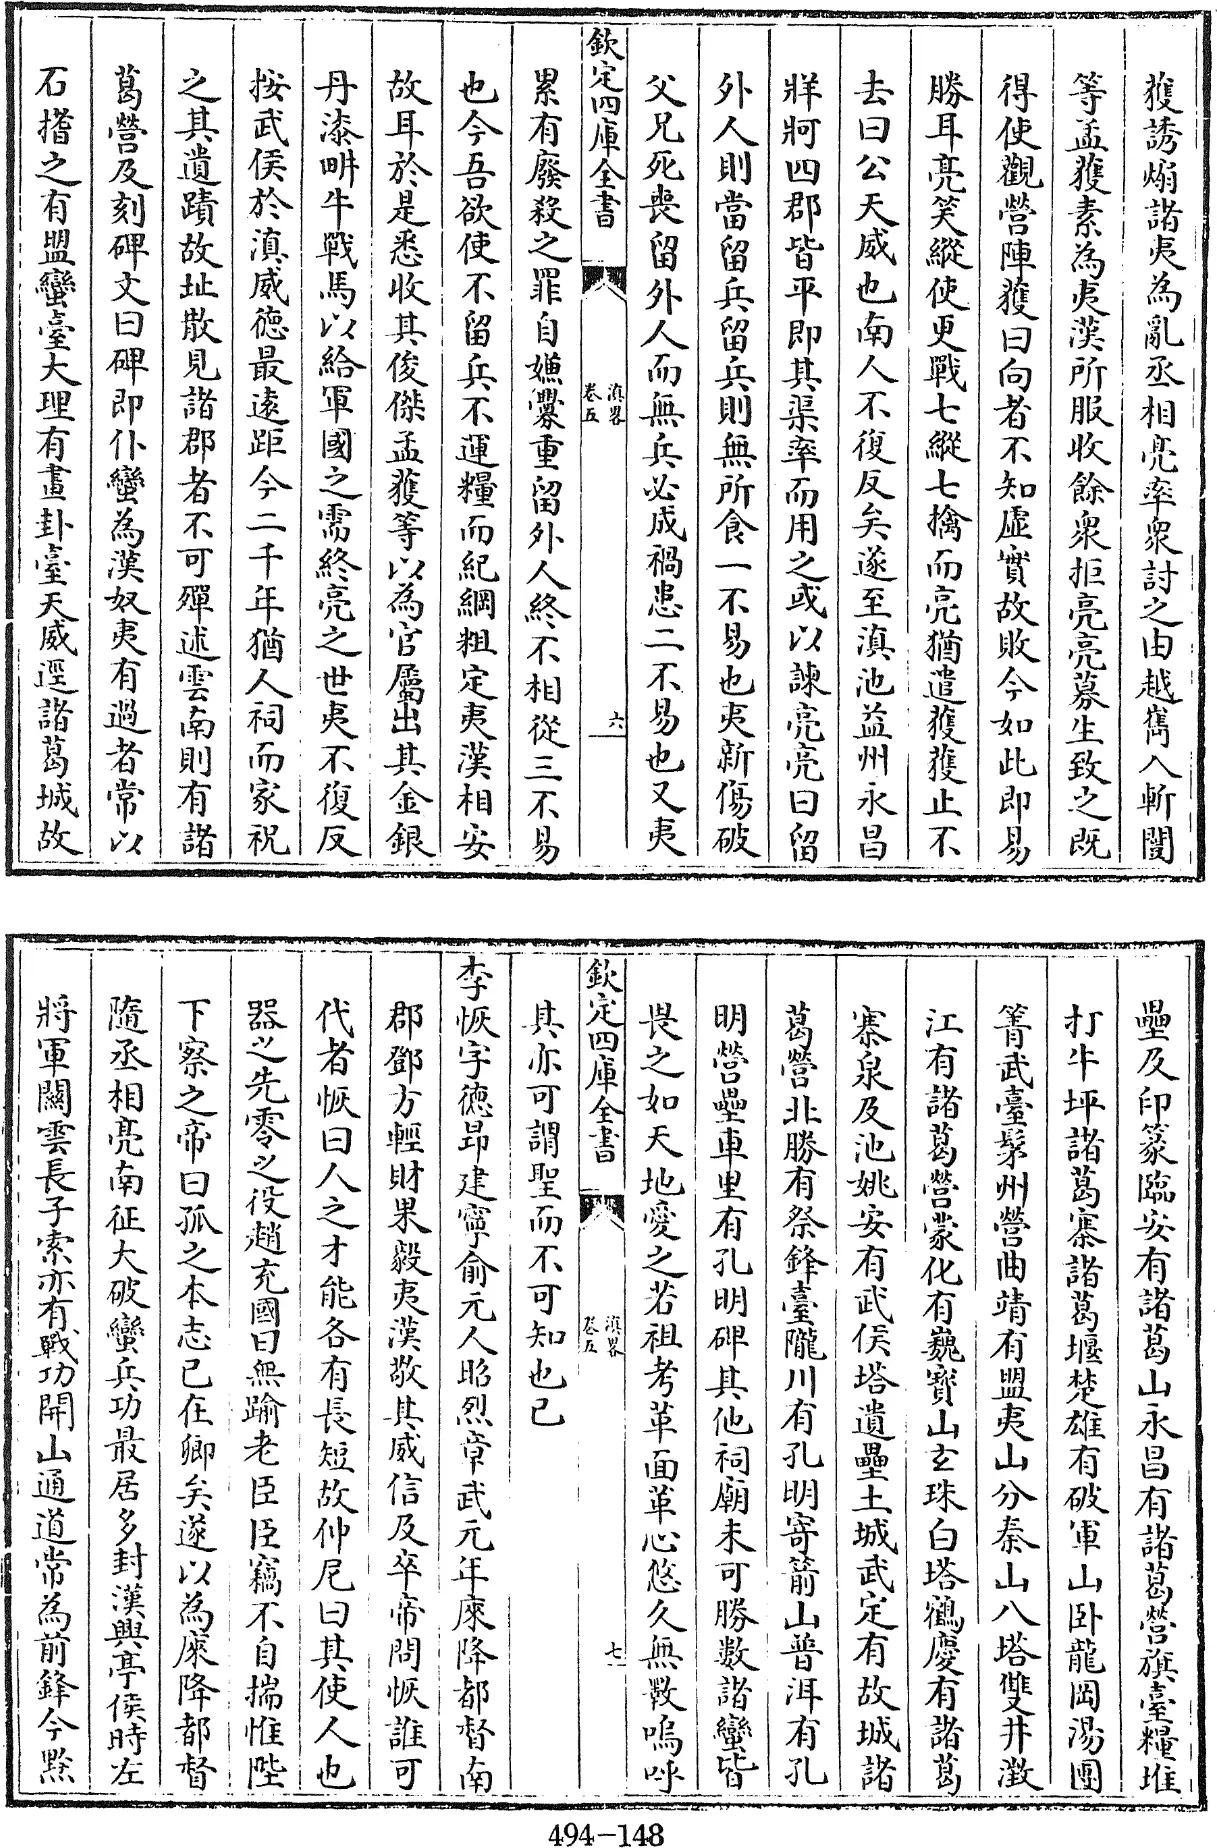 獲誘煽諸夷為亂丞相亮率衆討之由越嶲入斬闓
等孟獲素為夷漢所服收餘衆拒亮亮募生致之既
得使觀營陣獲曰向者不知虛實故敗今如此即易
勝耳亮笑縱使更戰七縱七擒而亮猶遣獲獲止不
去曰公天威也南人不復反矣遂至滇池益州永昌
牂牁四郡皆平即其渠率而用之或以諫亮亮曰留
外人則當留兵留兵則無所食一不易也夷新傷破
父兄死喪留外人而無兵必成禍患二不易也又夷
欽定四庫全書
滇畧
卷五
六
累有廢殺之罪自嫌釁重留外人終不相從三不易
也今吾欲使不留兵不運糧而紀綱粗定夷漢相安
故耳於是悉收其俊傑孟獲等以為官屬出其金銀
丹漆畊牛戰馬以給軍國之需終亮之世夷不復反
按武侯於滇威德最遠距今二千年猶人祠而家祝
之其遺蹟故址散見諸郡者不可殫述雲南則有諸
葛營及刻碑文曰碑即仆蠻為漢奴夷有過者常以
石搘之有盟蠻臺大理有畫卦臺天威逕諸葛城故
壘及印篆臨安有諸葛山永昌有諸葛營旗臺糧堆
打牛坪諸葛寨諸葛堰楚雄有破軍山卧龍岡湯團
箐武臺髳州營曲靖有盟夷山分秦山八塔雙井澂
江有諸葛營蒙化有巍寶山玄珠白塔鶴慶有諸葛
寨泉及池姚安有武侯塔遺壘土城武定有故城諸
葛營北勝有祭鋒臺隴川有孔明寄箭山普洱有孔
明營壘車里有孔明碑其他祠廟未可勝數諸蠻皆
畏之如天地愛之若祖考革面革心悠久無斁嗚呼
欽定四庫全書
滇畧
卷五
七
其亦可謂聖而不可知也已
李恢字德昻建寧俞元人昭烈章武元年庲降都督南
郡鄧方輕財果毅夷漢敬其威信及卒帝問恢誰可
代者恢曰人之才能各有長短故仲尼曰其使人也
器之先零之役趙充國曰無踰老臣臣竊不自揣惟陛
下察之帝曰孤之本志已在卿矣遂以為庲降都督
隨丞相亮南征大破蠻兵功最居多封漢興亭侯時左
將軍關雲長子索亦有戰功開山通道常為前鋒今黔
494-148